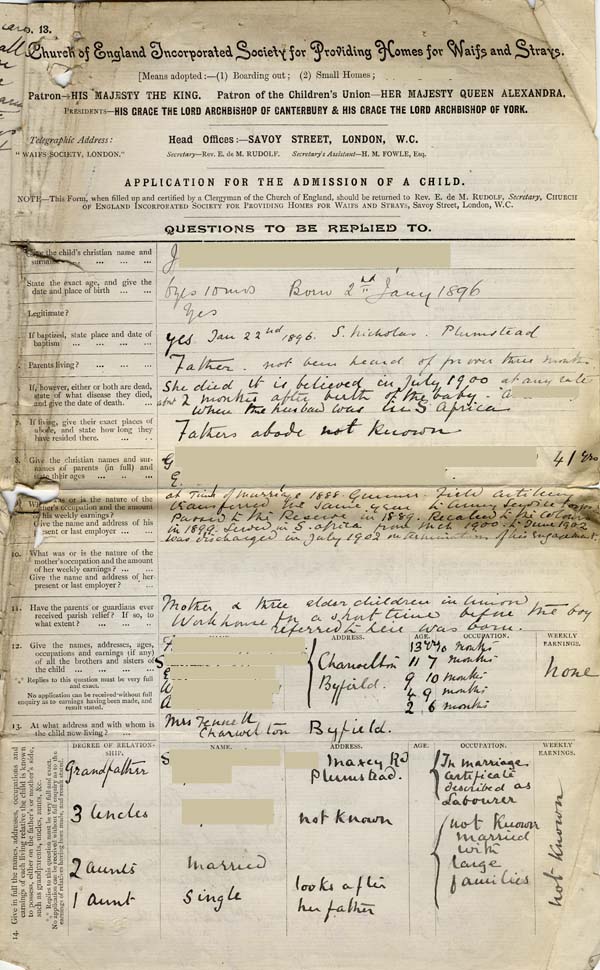 o. 13.
Church of England Incorporated Society for Providing Homes for Waifs and Strays.
[Means adopted:—(1) Boarding out; (2) Small Homes;
Patron—HIS MAJESTY THE KING. Patron of the Children's Union—HER MAJESTY QUEEN ALEXANDRA.
PRESIDENTS—HIS GRACE THE LORD ARCHBISHOP OF CANTERBURY & HIS GRACE THE LORD ARCHBISHOP OF YORK.
Telegraphic Address: Head Offices:—SAVOY STREET, LONDON, W.C.
"WAIFS SOCIETY, LONDON." Secretary—Rev. E. de M. RUDOLF. Secretary's Assistant—H. M. FOWLE, Esq.
APPLICATION FOR THE ADMISSION OF A CHILD.
NOTE—This Form, when filled up and certified by a Clergyman of the Church of England, should be returned to Rev. E. de M. RUDOLF, Secretary, CHURCH
OF ENGLAND INCORPORATED SOCIETY FOR PROVIDING HOMES FOR WAIFS AND STRAYS, Savoy Street, London, W.C.
QUESTIONS TO BE REPLIED TO.
Give the child's christian name and
surname
J
State the exact age, and give the
date and place of birth
6yrs 10mos Born 2nd Jany 1896
Legitimate?
Yes
If baptized, state place and date of
baptism
yes. Jan 22nd 1896. S. Nicholas. Plumstead
Parents living?
Father. not been heard of for over three months
If, however, either or both are dead,
state of what disease they died,
and give the date of death.
She died it is believed in July 1900 at any rate
abt 2 months after birth of the baby. A
when the husband was in S Africa
7. If living, give their exact places of
abode, and state how long they
have resided there.
Fathers abode not known
8. Give the christian names and sur-
names of parents (in full) and
state their ages
G 41 yrs
E.
What was or is the nature of the
father's occupation and the amount
of his weekly earnings?
Give the name and address of his
present or last employer?
at time of marriage 1888 Gunner. Field Artillery
transferred the same year to Army Service Corps
Passed to the Reserve in 1889. Recalled to the colours
in 1899. Served in S. Africa from 1900 to June 1902
was discharged in July 1902 on termination of his engagement.
10. What was or is the nature of the
mother's occupation and the amount
of her weekly earnings?
Give the name and address of her
present or last employer?
11. Have the parents or guardians ever
received parish relief? If so, to
what extent?
Mother & three elder children in Union
Workhouse for a short time before the boy
referred to here was born.
12. Give the names, addresses, ages,
occupations and earnings (if any)
of all the brothers and sisters of
the child
*** Replies to this question must be very full
and exact.
No application can be received without full
enquiry as to earnings having been made, and
result stated.
NAME. ADDRESS. AGE. OCCUPATION. WEEKLY EARNINGS.
Charwelton
Byfield.
11 7 months
9 10 months
4 9 months
2 6 months
none
13. At what address and with whom is
the child now living?
Mrs Fennell
Charwelton Byfield.
14. Give in full the names, addresses, occupations and
earnings of each living relative the child is known
to possess, either on the father's or mother's side,
such as grandparents, uncles, aunts, &c.
*** Replies to this question must be very full and exact.
No application can be received without full enquiry as to the
earnings of relatives having been made, and result stated.
DEGREE OF RELATION-
SHIP. NAME. ADDRESS. AGE. OCCUPATION. WEEKLY EARNINGS.
Grandfather S Maxey Rd
Plumstead.
In marriage
certificate
described as
Labourer
3 Uncles not known
not known
married
with
large
families
not known
2 aunts married
1 aunt Single looks after
her father